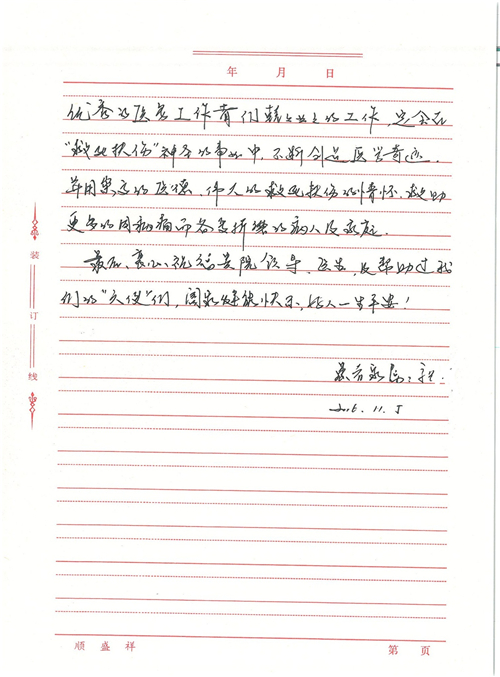 年 月 日
优秀的医务工作者们兢兢业业的工作,定会在
“救死扶伤”神圣的事业中,不断创造医学奇迹.
并用崇高的医德,伟大的救死扶伤的情怀,救助
更多的因病痛而备受折磨的病人及家庭.
最后,衷心祝福贵院领导、医生,及帮助过我
们的“天使”们,阖家健康快乐,好人一生平安!
患者家属:
2016.11.5
装
订
线
顺盛祥
第 页